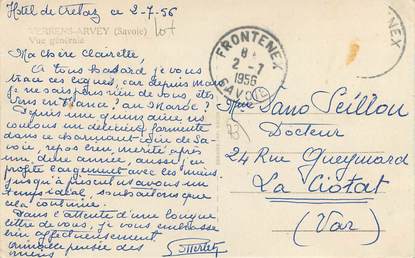 Hôtel de Cretaz ce 2-7-56
VERRENS-ARVEY (Savoie)
Vue générale
Ma chère Clairette,
A tous hasard je vous
ces lignes, car depuis mai
je ne sais plus rien de vous, êtes
vous en France? au Maroc?
Depuis une quinzaine ns
goutons un détente
dans ce charmant coin de Sa-
voie, repos bien mérité après
une dure année, aussi j'en
profite largement avec les miens.
Jusqu'à présent ns avons un
temps idéal, souhaitons que
cela continue.
Dans l'attente d'une longue
lettre de vous, je vous embrasse
bien affectueusement
pensée des
miens
FRONTENEX
8H
2-7
1956
SAVOIE
NEX
Mme Sano Seillon
Docteur
24 Rue Gueymard
La Ciotat
(Var)